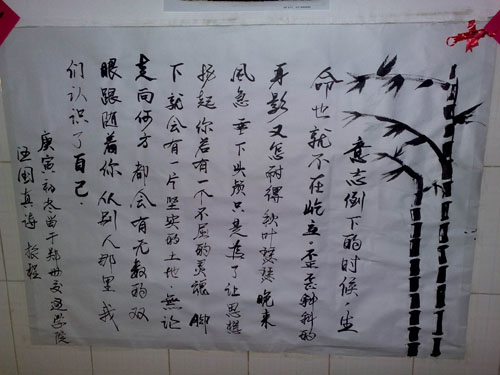 意志倒下的时候·生
命也就不在屹立·歪歪斜斜的
身影又怎耐得 秋叶瑟瑟 晚来
风急 垂下头颅只是为了让思想
扬起 你若有一个不屈的灵魂 脚
下就会有一片坚实的土地·無论
走向何方 都会有无数的双
眼跟随着你 从别人那里 我
们认识了自己·
庚寅·初冬留于郑州交通学院
汪国真诗